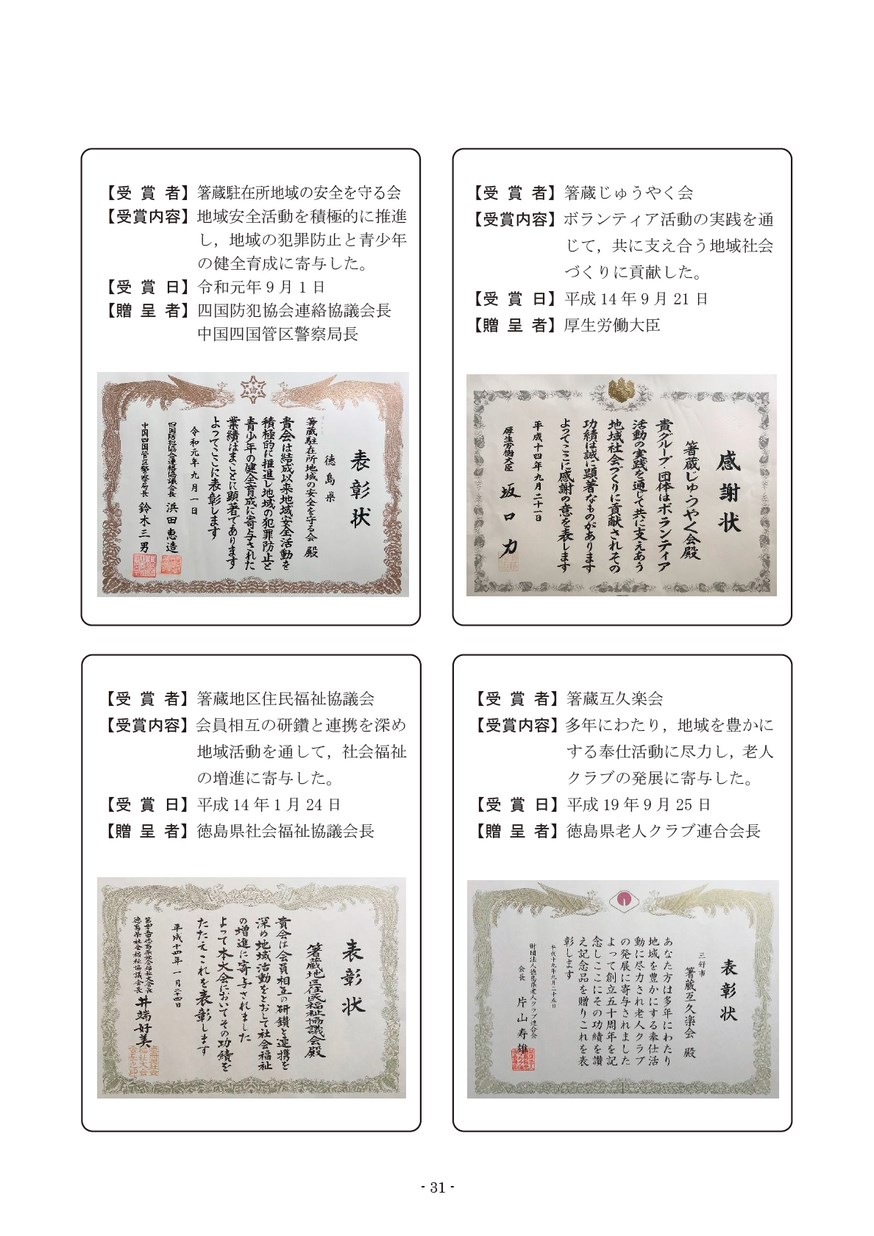 【受賞者】箸蔵駐在所地域の安全を守る会
【受賞内容】地域安全活動を積極的に推進
し，地域の犯罪防止と青少年
の健全育成に寄与した。
【受賞日】令和元年９月１日
【贈呈者】四国防犯協会連絡協議会長
中国四国管区警察局長
表彰状
徳島県
箸蔵駐在所地域の安全を守る会 殿
貴会は結成以来地域安全活動を
積極的に推進し地域の犯罪防止と
青少年の健全育成に寄与された
業績はまことに顕著であります
よってここに表彰します
令和元年九月一日
四国防犯協会連絡協議会長 浜田恵造
中国四国管区警察局長 鈴木三男
【受賞者】箸蔵じゅうやく会
【受賞内容】ボランティア活動の実践を通
じて，共に支え合う地域社会
づくりに貢献した。
【受賞日】平成14年９月21日
【贈呈者】厚生労働大臣
感謝状
箸蔵じゅうやく会殿
貴グループ・団体はボランティア
活動の実践を通じて共に支えあう
地域社会づくりに貢献されその
功績は誠に顕著なものがあります
よってここに感謝の意を表します
平成十四年九月二十一日
厚生労働大臣 坂口力
【受賞者】箸蔵地区住民福祉協議会
【受賞内容】会員相互の研鑽と連携を深め
地域活動を通して，社会福祉
の増進に寄与した。
【受賞日】平成14年１月24日
【贈呈者】徳島県社会福祉協議会長
表彰状
箸蔵地区住民福祉協議会殿
貴会は会員相互の研鑽と連携を
深め地域活動をとおして社会福祉
の増進に寄与されました
よって本大会においてその功績を
たたえこれを表彰します
平成十四年一月二十四日
徳島県社会福祉協議会長 井端好美
【受賞者】箸蔵互久楽会
【受賞内容】多年にわたり，地域を豊かに
する奉仕活動に尽力し，老人
クラブの発展に寄与した。
【受賞日】平成19年９月25日
【贈呈者】徳島県老人クラブ連合会長
表彰状
三好市
箸蔵互久楽会 殿
あなた方は多年にわたり
地域を豊かにする奉仕活
動に尽力され老人クラブ
の発展に寄与されました
よって創立五十周年を記
念しここにその功績を讃
え記念品を贈りこれを表
彰します
平成十九年九月二十五日
財団法人徳島県老人クラブ連合会
会長 片山寿雄
- 31 -